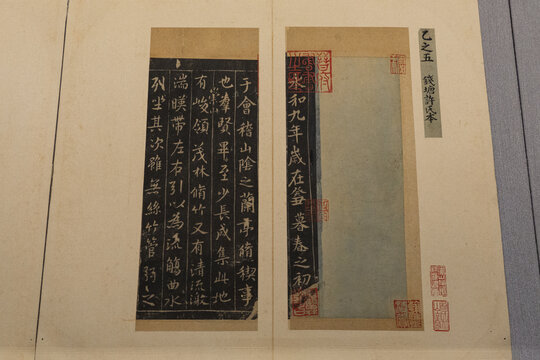 乙之五 錢塘許氏本
永和九年歲在癸丑暮春之初會
于會稽山陰之蘭亭脩稧事
也羣賢畢至少長咸集此地
有崇山峻領茂林脩竹又有清流激
湍暎帶左右引以為流觴曲水
列坐其次雖無絲竹管弦之